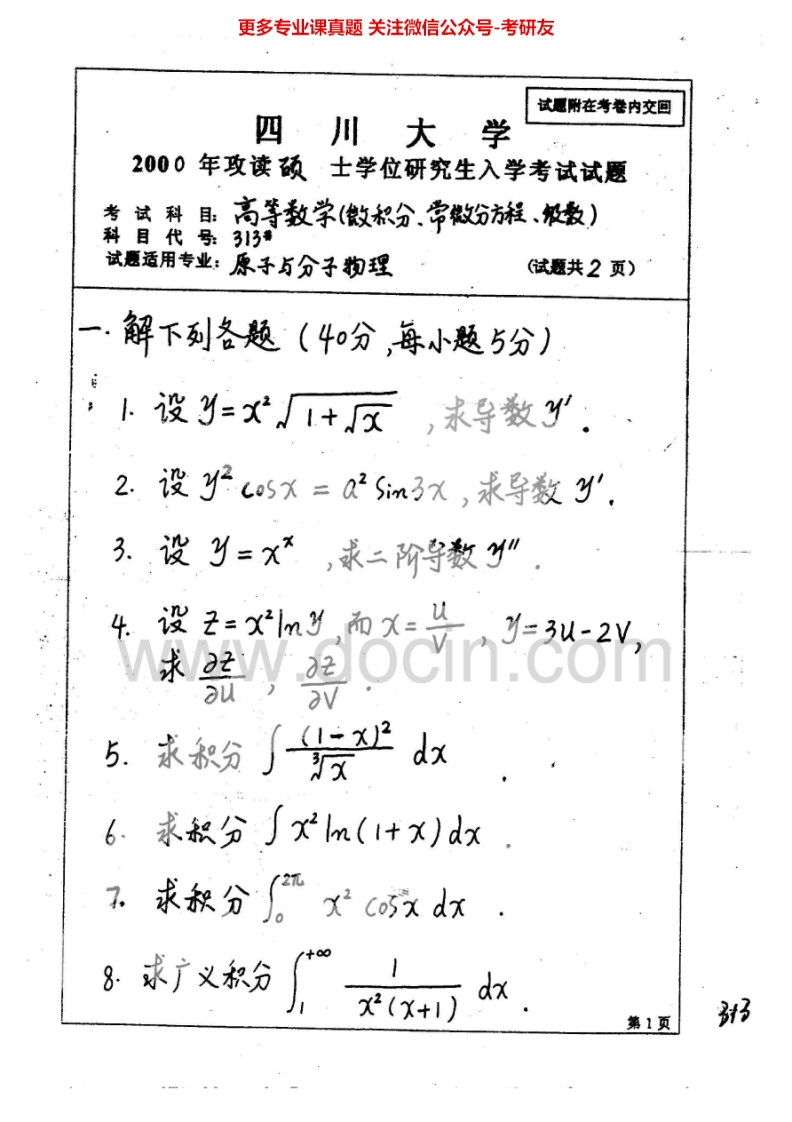 更多专业课真题 关注微信公众号-考研友
试题附在考卷内交回
四 川 大 学
2000 年攻读硕 士学位研究生入学考试试题
考 试 科 目: 高等数学(微积分、常微分方程、级数)
科 目 代 号: 313#
试题适用专业: 原子与分子物理 (试题共 2 页)
一. 解下列各题 (40分,每小题5分)
1. 设 y=x²√(1+√x) ,求导数 y′.
2. 设 y² cosx = a² Sin3x ,求导数 y′.
3. 设 y=x^x ,求二阶导数 y″.
4. 设 z=x²lny,而 x=u/v , y=3u-2v,
求 ∂z/∂u , ∂z/∂v .
www.docin.com
5. 求积分 ∫ (1-x)²/∛x dx
6. 求积分 ∫ x² ln(1+x)dx .
7. 求积分 ∫₀^2π x² cosx dx .
8. 求广义积分 ∫₁^+∞ 1/(x²(x+1)) dx .
第 1 页
313